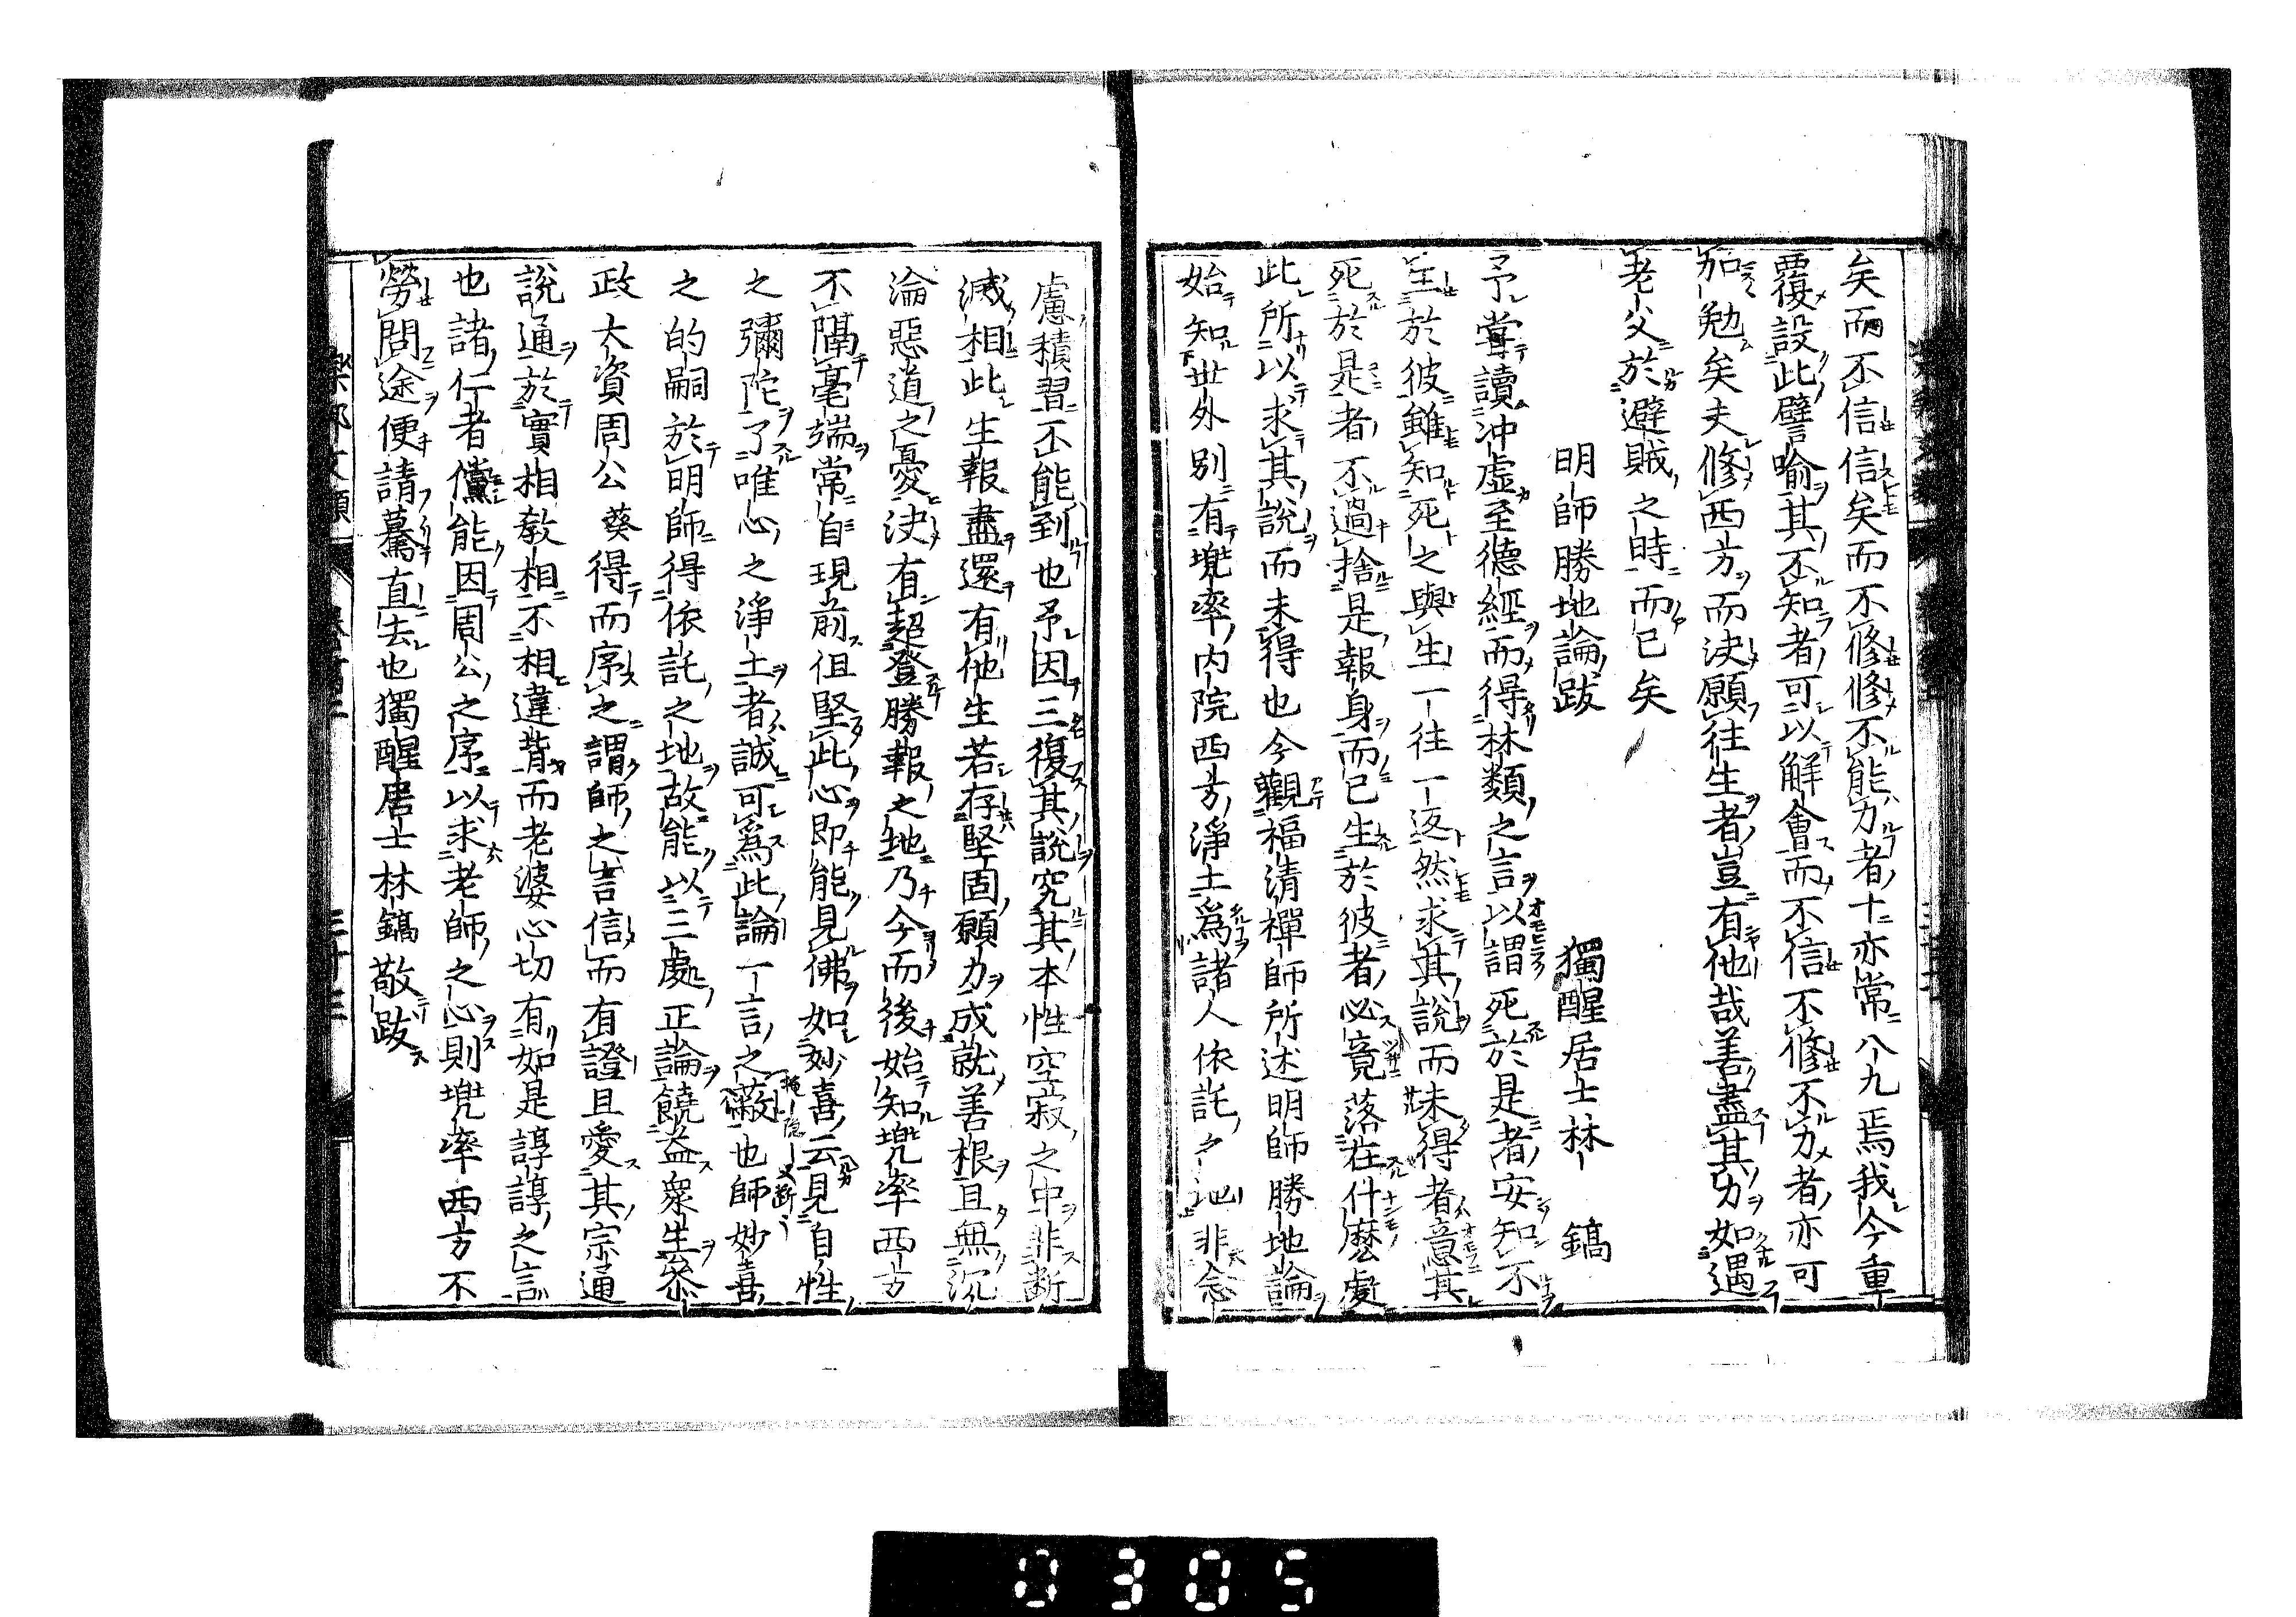 矣而不信信矣而不修修不能力者十亦常八九焉我今重
覆設此譬喻其不知者可以解會而不信不修不力者亦可
加勉矣夫修西方而決願往生者豈有他哉善盡其力如遇
老父於避賊之時而已矣
明師勝地論跋　獨醒居士林鎬
予嘗讀冲虛至德經而得林類之言以謂死於是者安知不
生於彼雖知死之與生一往一返然求其說而未得者意其
死於是者不過捨是報身而已生於彼者必竟落在什麼處
此所以求其說而未得也今觀福清禪師所述明師勝地論
始知世外別有兜率內院西方淨土爲諸人依託之地非念
慮積習不能到也予因三復其說究其本性空寂之中非斷
滅相此生報盡還有他生若存堅固願力成就善根且無沉
淪惡道之憂決有超登勝報之地乃今而後始知兜率西方
不隔毫端常自現前但堅此心即能見佛如妙喜云見自性
之彌陀了唯心之淨土者誠可爲此論一言之蔽也師妙喜
之的嗣於明師得依託之地故能以三處正論饒益衆生參
政大資周公葵得而序之謂師之言信而有證且愛其宗通
說通於實相教相不相違背而老婆心切有如是諄諄之言
也諸仁者儻能因周公之序以求老師之心則兜率西方不
勞問途便請驀直去也獨醒居士林鎬敬跋
樂邦文類　三十三